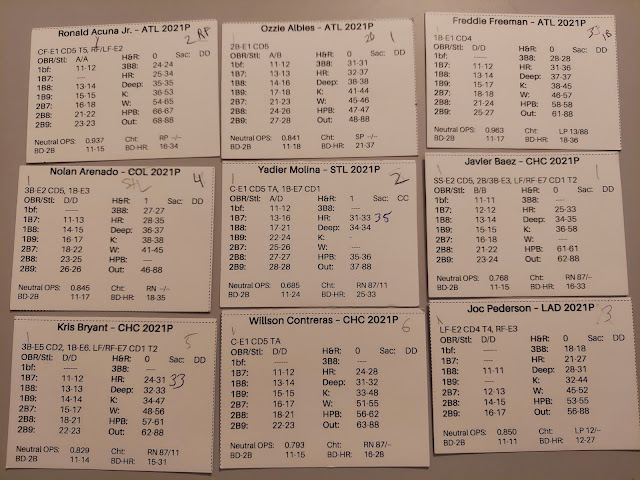 Ronald Acuna Jr. - ATL 2021P
2 RP
CF-E1 CD5 T5, RF/LF-E2
OBR/Stl: A/A H&R: 0 Sac: DD
1bf: 11-12 3B8: 24-24
1B7: ---- HR: 25-34
1B8: 13-14 Deep: 35-35
1B9: 15-15 K: 36-53
2B7: 16-18 W: 54-65
2B8: 21-22 HPB: 66-67
2B9: 23-23 Out: 68-88
Neutral OPS: 0.937 Cht: RP -/--
BD-2B 11-15 BD-HR: 16-34
Ozzie Albies - ATL 2021P
20 1
2B-E1 CD5
OBR/Stl: A/B H&R: 1 Sac: DD
1bf: 11-12 3B8: 31-31
1B7: ---- HR: 32-37
1B8: 13-14 Deep: 38-38
1B9: 15-15 K: 41-44
2B7: 17-18 W: 45-46
2B8: 21-23 HPB: 47-47
2B9: 24-26 Out: 48-88
2B9: 27-28
Neutral OPS: 0.841 Cht: SP -/--
BD-2B 11-18 BD-HR: 21-37
Freddie Freeman - ATL 2021P
1B
1B-E1 CD4
OBR/Stl: D/D H&R: 0 Sac: DD
1bf: 11-12 3B8: 28-28
1B7: ---- HR: 31-36
1B8: 13-14 Deep: 37-37
1B9: 15-17 K: 38-45
2B7: 18-18 W: 46-57
2B8: 21-24 HPB: 58-58
2B9: 25-27 Out: 61-88
Neutral OPS: 0.963 Cht: LP 13/88
BD-2B 11-17 BD-HR: 18-36
Nolan Arenado - COL 2021P
STL 4
3B-E2 CD5, 1B-E3
OBR/Stl: D/D H&R: 1 Sac: DD
1bf: ---- 3B8: 27-27
1B7: 11-13 HR: 28-35
1B8: 14-15 Deep: 36-37
1B9: 16-17 K: 38-38
2B7: 18-22 W: 41-45
2B8: 23-25 HPB: ----
2B9: 26-26 Out: 46-88
Neutral OPS: 0.845 Cht: RN -/--
BD-2B 11-17 BD-HR: 18-35
Yadier Molina - STL 2021P
2
C-E1 CD5 TA, 1B-E7 CD1
OBR/Stl: D/D H&R: 1 Sac: CC
1bf: 11-12 3B8: ----
1B7: 13-16 HR: 31-33 35
1B8: 17-21 Deep: 34-34
1B9: 22-24 K:
2B7: 25-26 W: ----
2B8: 27-27 HPB: 35-36
2B9: 28-28 Out: 37-88
Neutral OPS: 0.685 Cht: RN 87/11
BD-2B 11-24 BD-HR: 25-33
Javier Baez - CHC 2021P
1
SS-E2 CD5, 2B/3B-E3, LF/RF-E7 CD1 T2
OBR/Stl: D/D H&R: 0 Sac: DD
1bf: 11-11 3B8: ----
1B7: 12-12 HR: 25-33
1B8: 13-14 Deep: 34-35
1B9: 15-15 K: 36-58
2B7: 16-18 W: ----
2B8: 21-22 HPB: 61-61
2B9: 23-24 Out: 62-88
Neutral OPS: 0.768 Cht: RN 87/--
BD-2B 11-15 BD-HR: 16-33
Kris Bryant - CHC 2021P
5
3B-E5 CD2, 1B-E6, LF/RF-E7 CD1 T2
OBR/Stl: D/D H&R: 0 Sac: DD
1bf: ---- 3B8: ----
1B7: 11-12 HR: 24-31 33
1B8: 13-14 Deep: 32-33
1B9: 14-14 K: 34-47
2B7: 15-17 W: 48-56
2B8: 18-21 HPB: 57-61
2B9: 22-23 Out: 62-88
Neutral OPS: 0.829 Cht: RN 87/11
BD-2B 11-14 BD-HR: 15-31
Willson Contreras - CHC 2021P
6
C-E1 CD5 TA
OBR/Stl: D/D H&R: 0 Sac: DD
1bf: ---- 3B8: ----
1B7: 11-12 HR: 24-28
1B8: 13-14 Deep: 31-32
1B9: 15-15 K: 33-48
2B7: 16-17 W: 51-55
2B8: 18-21 HPB: 56-62
2B9: 22-23 Out: 63-88
Neutral OPS: 0.793 Cht: RN 87/--
BD-2B 11-15 BD-HR: 16-28
Joc Pederson - LAD 2021P
3
LF-E2 CD4 T4, RF-E3
OBR/Stl: D/D H&R: 0 Sac: DD
1bf: ---- 3B8: 18-18
1B7: ---- HR: 21-27
1B8: 11-11 Deep: 28-31
1B9: ---- K: 32-44
2B7: 12-13 W: 45-52
2B8: 14-15 HPB: 53-55
2B9: 16-17 Out: 56-88
Neutral OPS: 0.850 Cht: LP 12/--
BD-2B 11-11 BD-HR: 12-27